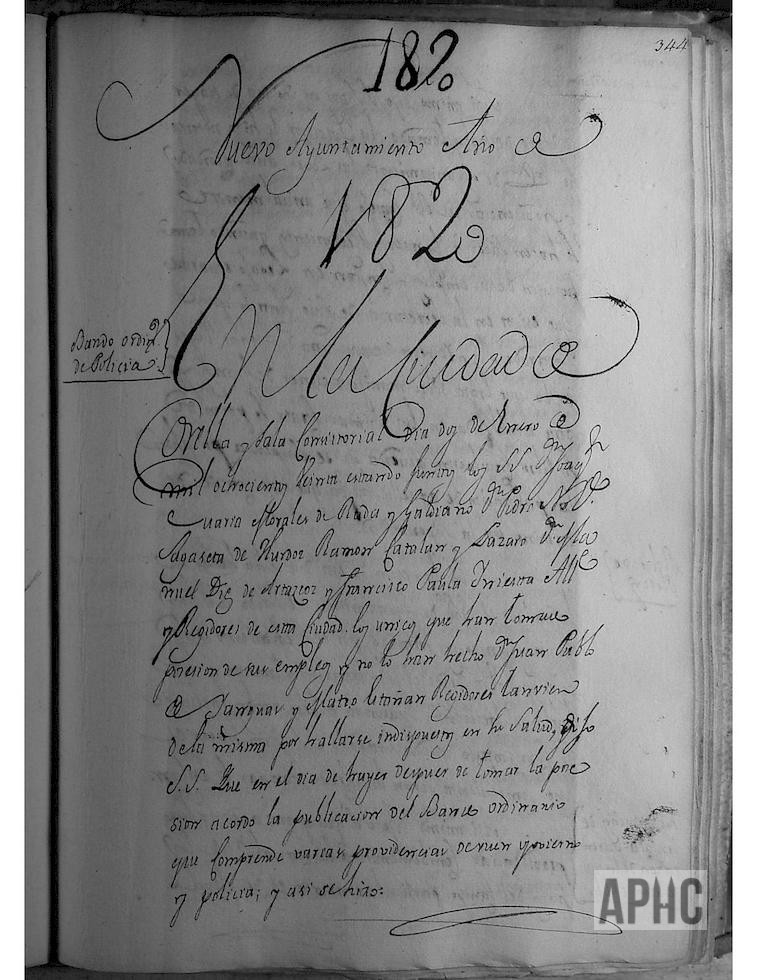 344
1820
Nuevo Ayuntamiento Año de
1820
Bando ordin.º
de Policia
En la Ciudad de
Corella y Sala Consistorial dia dos de Enero de
mil ochocientos veinte estando juntos los SS. Dn Joaqn
Maria Morales de Rada y Galdiano Dn Pedro
Sagaseta de Ylurdoz Ramon Catalan y Lazaro Dn Ma
nuel Diz de Artazcoz y Francisco Paula Yniesta Alle
y Regidores de esta Ciudad. los unicos que han tomado
posesion de sus empleos y no lo han hecho Dn Juan Pablo
de y Mateo Regidores tanvien
de la misma por hallarse indispuestos en su Salud,
S.S. Que en el dia de huyer despues de tomar la pose
sion acordo la publicacion del Bando ordinario
que comprende varias providencias de vuen govierno
y policia; y asi se hizo:
APHC